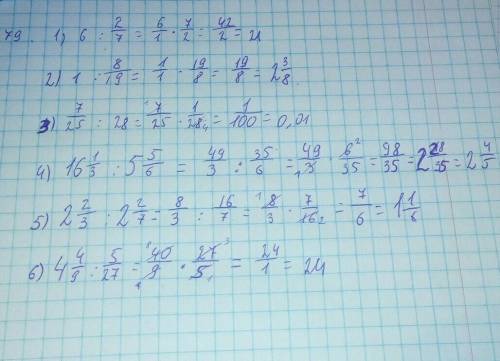 79. 1) 6 : 2/7 = 6/1 · 7/2 = 42/2 = 21
2) 1 : 8/19 = 1/1 · 19/8 = 19/8 = 2 3/8
3) 7/25 : 28 = 7/25 · 1/28 = 1/100 = 0,01
4) 16 1/3 : 5 5/6 = 49/3 : 35/6 = 49/3 · 6/35 = 98/35 = 2 28/35 = 2 4/5
5) 2 2/3 : 2 2/7 = 8/3 : 16/7 = 8/3 · 7/16 = 7/6 = 1 1/6
6) 4 4/9 : 5/27 = 40/9 · 27/5 = 24/1 = 24